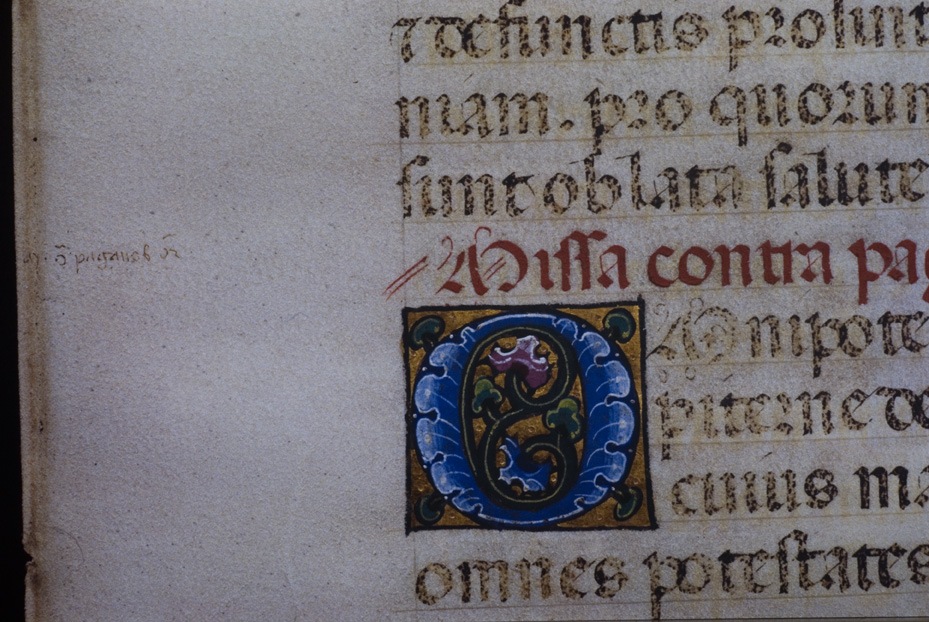 ⁊ defunctis prosint
niam. pro quorum
sunt oblata salute
Missa contra pag
OMnipote
piterne de
cuius ma
omnes potestates